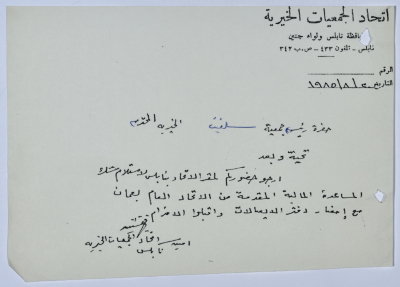 اتحاد الجمعيات الخيرية
محافظة نابلس ولواء جنين
نابلس - تلفون ٤٣٣ - ص.ب ٣٤٢
الرقم
التاريخ ١٩٨٥/٨/٢٠
حضرة رئيس جمعية سلفيت الخيرية المحترم
تحية وبعد
ارجو حضوركم لمقر الاتحاد بنابلس لاستلام شك
المساعدة المالية المقدمة من الاتحاد العام بعمان
مع إحضار دفتر الايصالات واقبلوا الاحترام
اتحاد الجمعيات الخيرية
نابلس